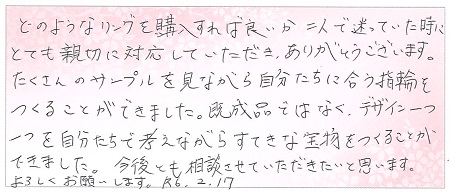 どのようなリングを購入すれば良いか 二人で迷っていた時に
とても親切に対応していただき、ありがとうございます。
たくさんのサンプルを見ながら自分たちに合う指輪を
つくることができました。既成品ではなく、デザイン一つ
一つを自分たちで考えながらすてきな宝物をつくることが
できました。 今後とも相談させていただきたいと思います。
よろしくお願いします。R6.2.17